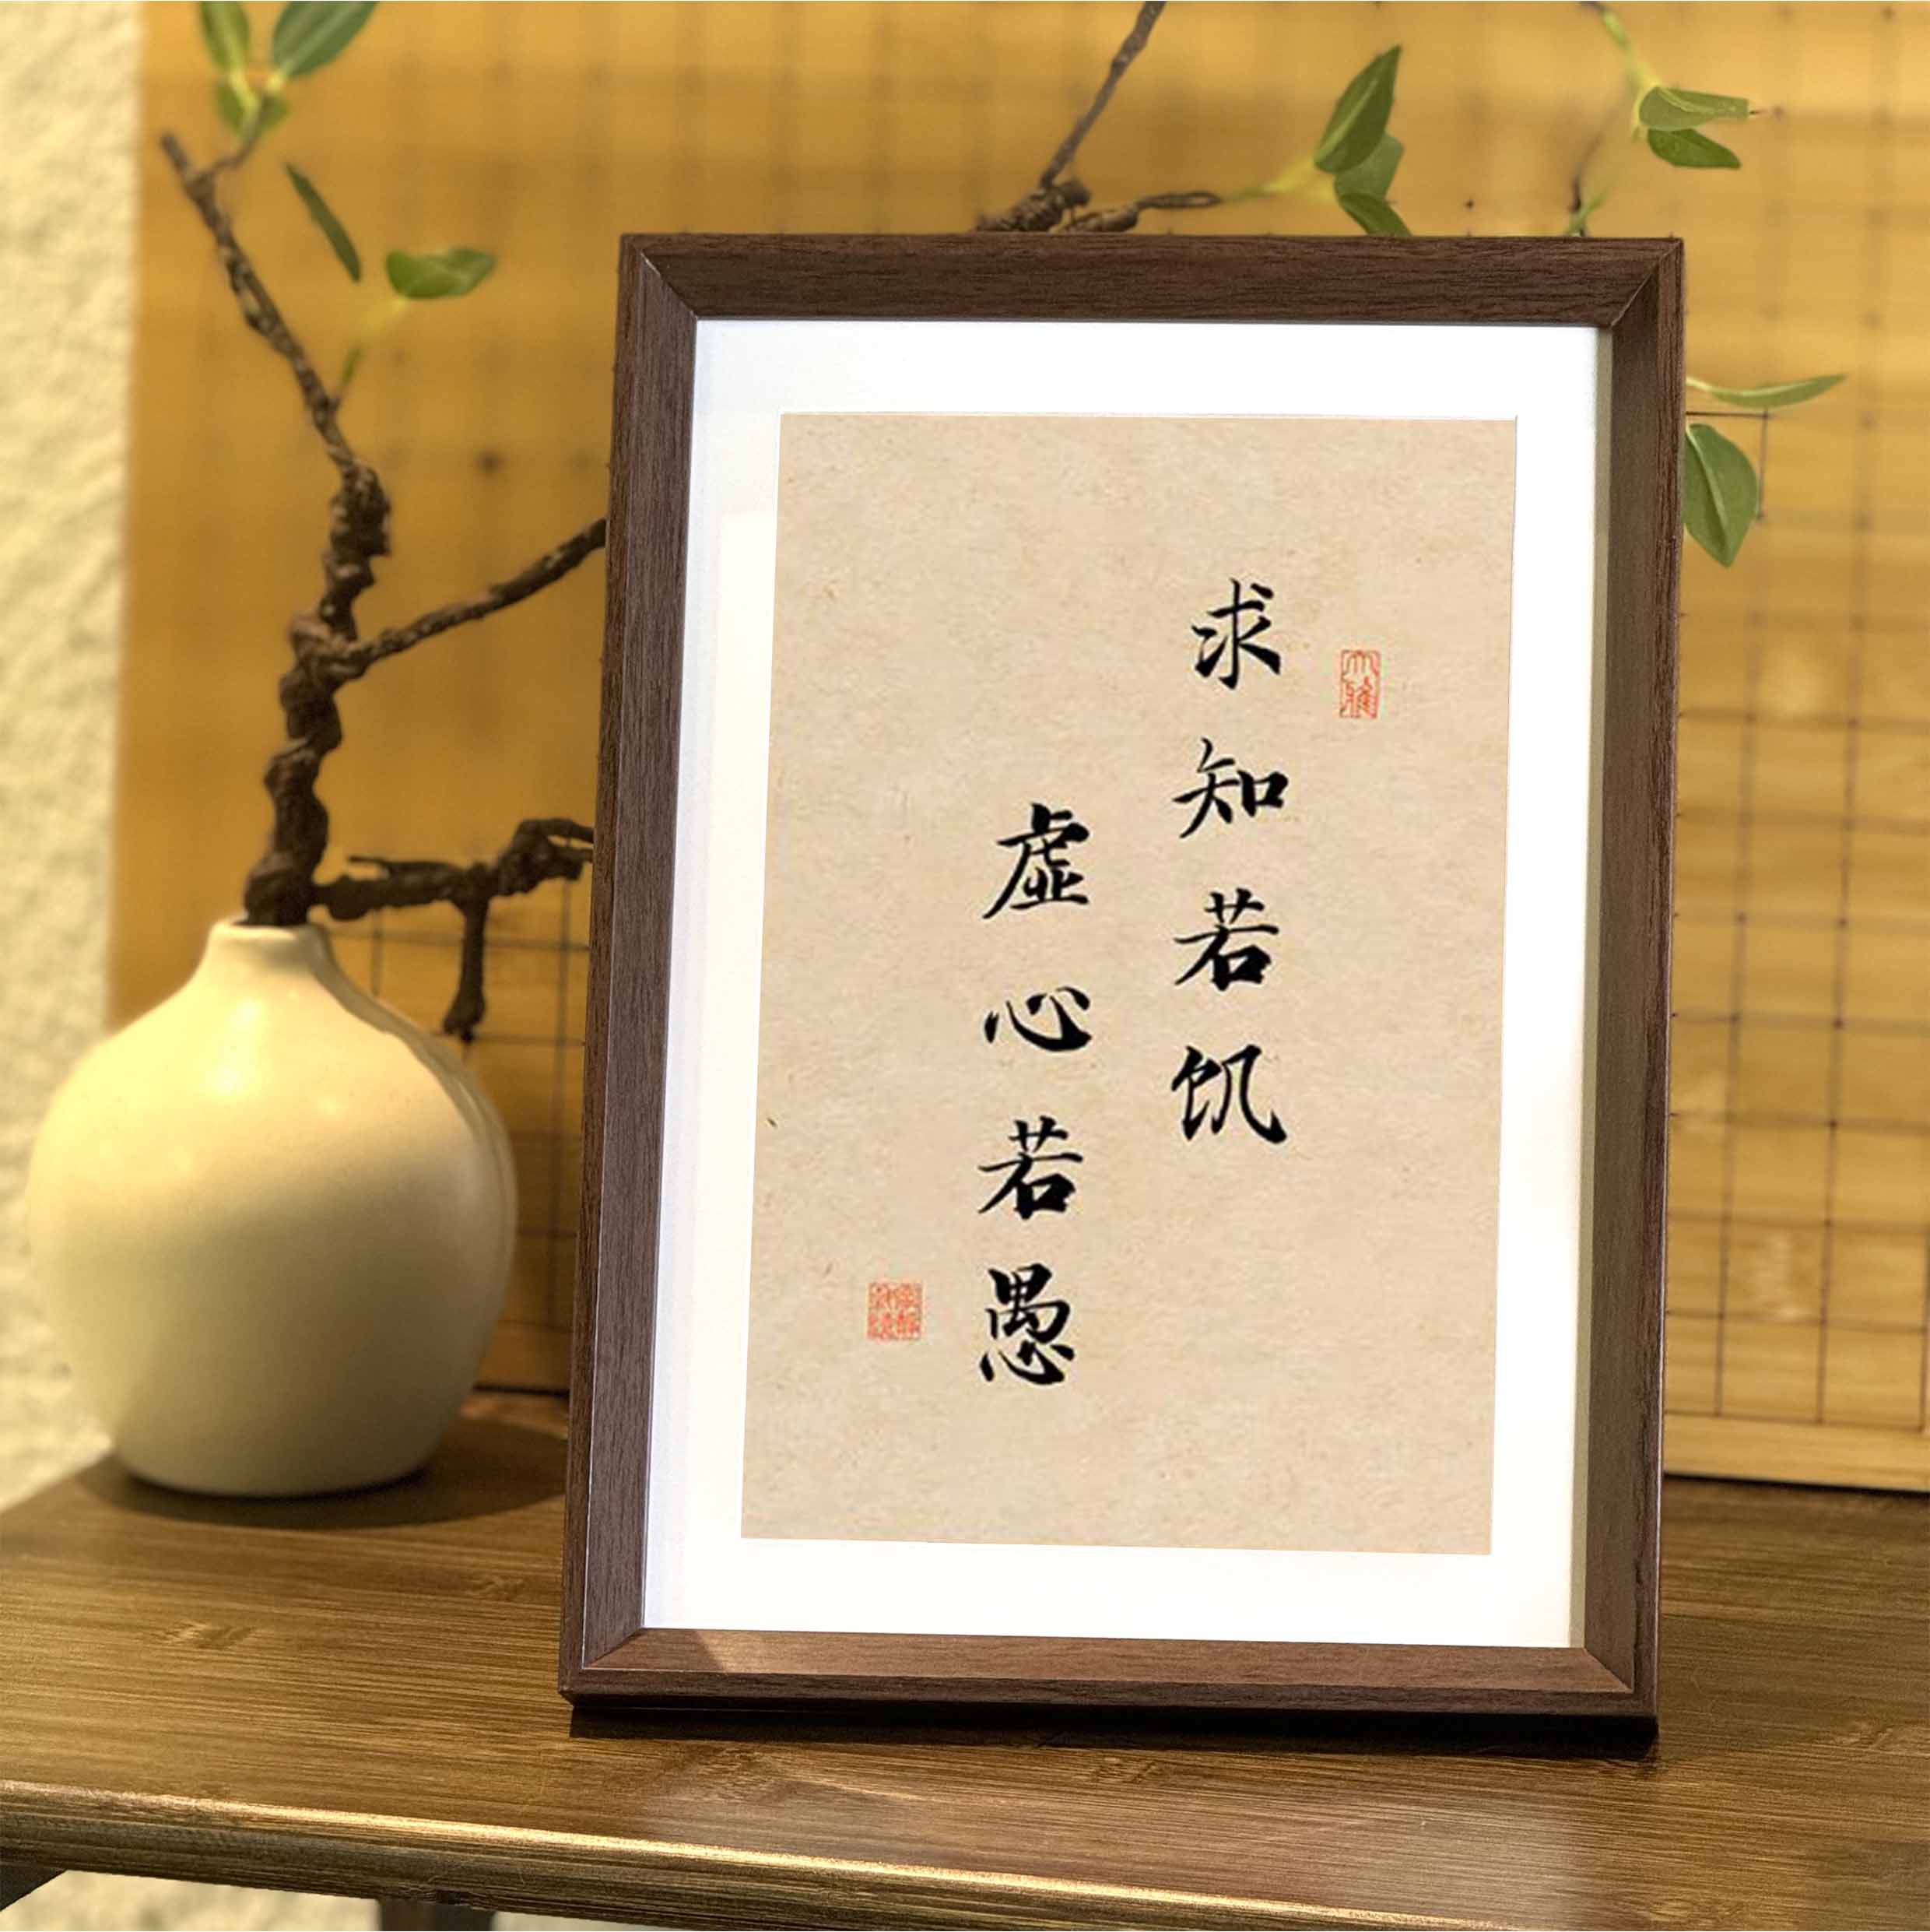 求知若饥
虚心若愚
大雅